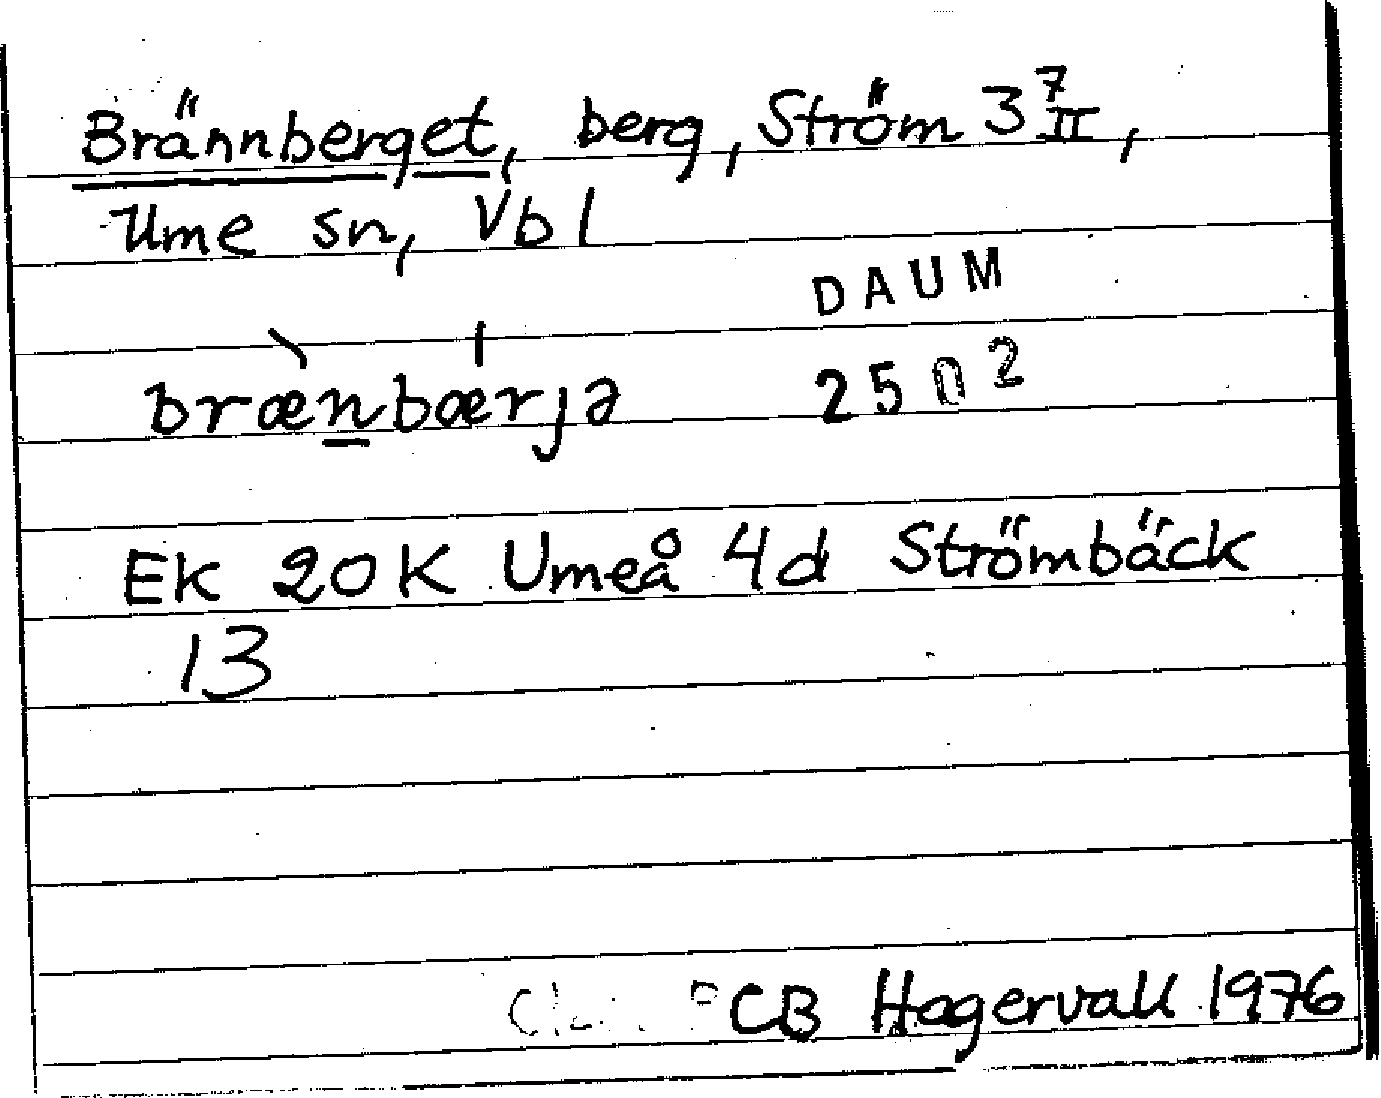 Brännberget, berg, Ström 3 7/II,
Ume sn, Vb l
DAUM
brænbærjə 2502
Ek 20K Umeå 4d Strömbäck
13
CB Hagervall 1976